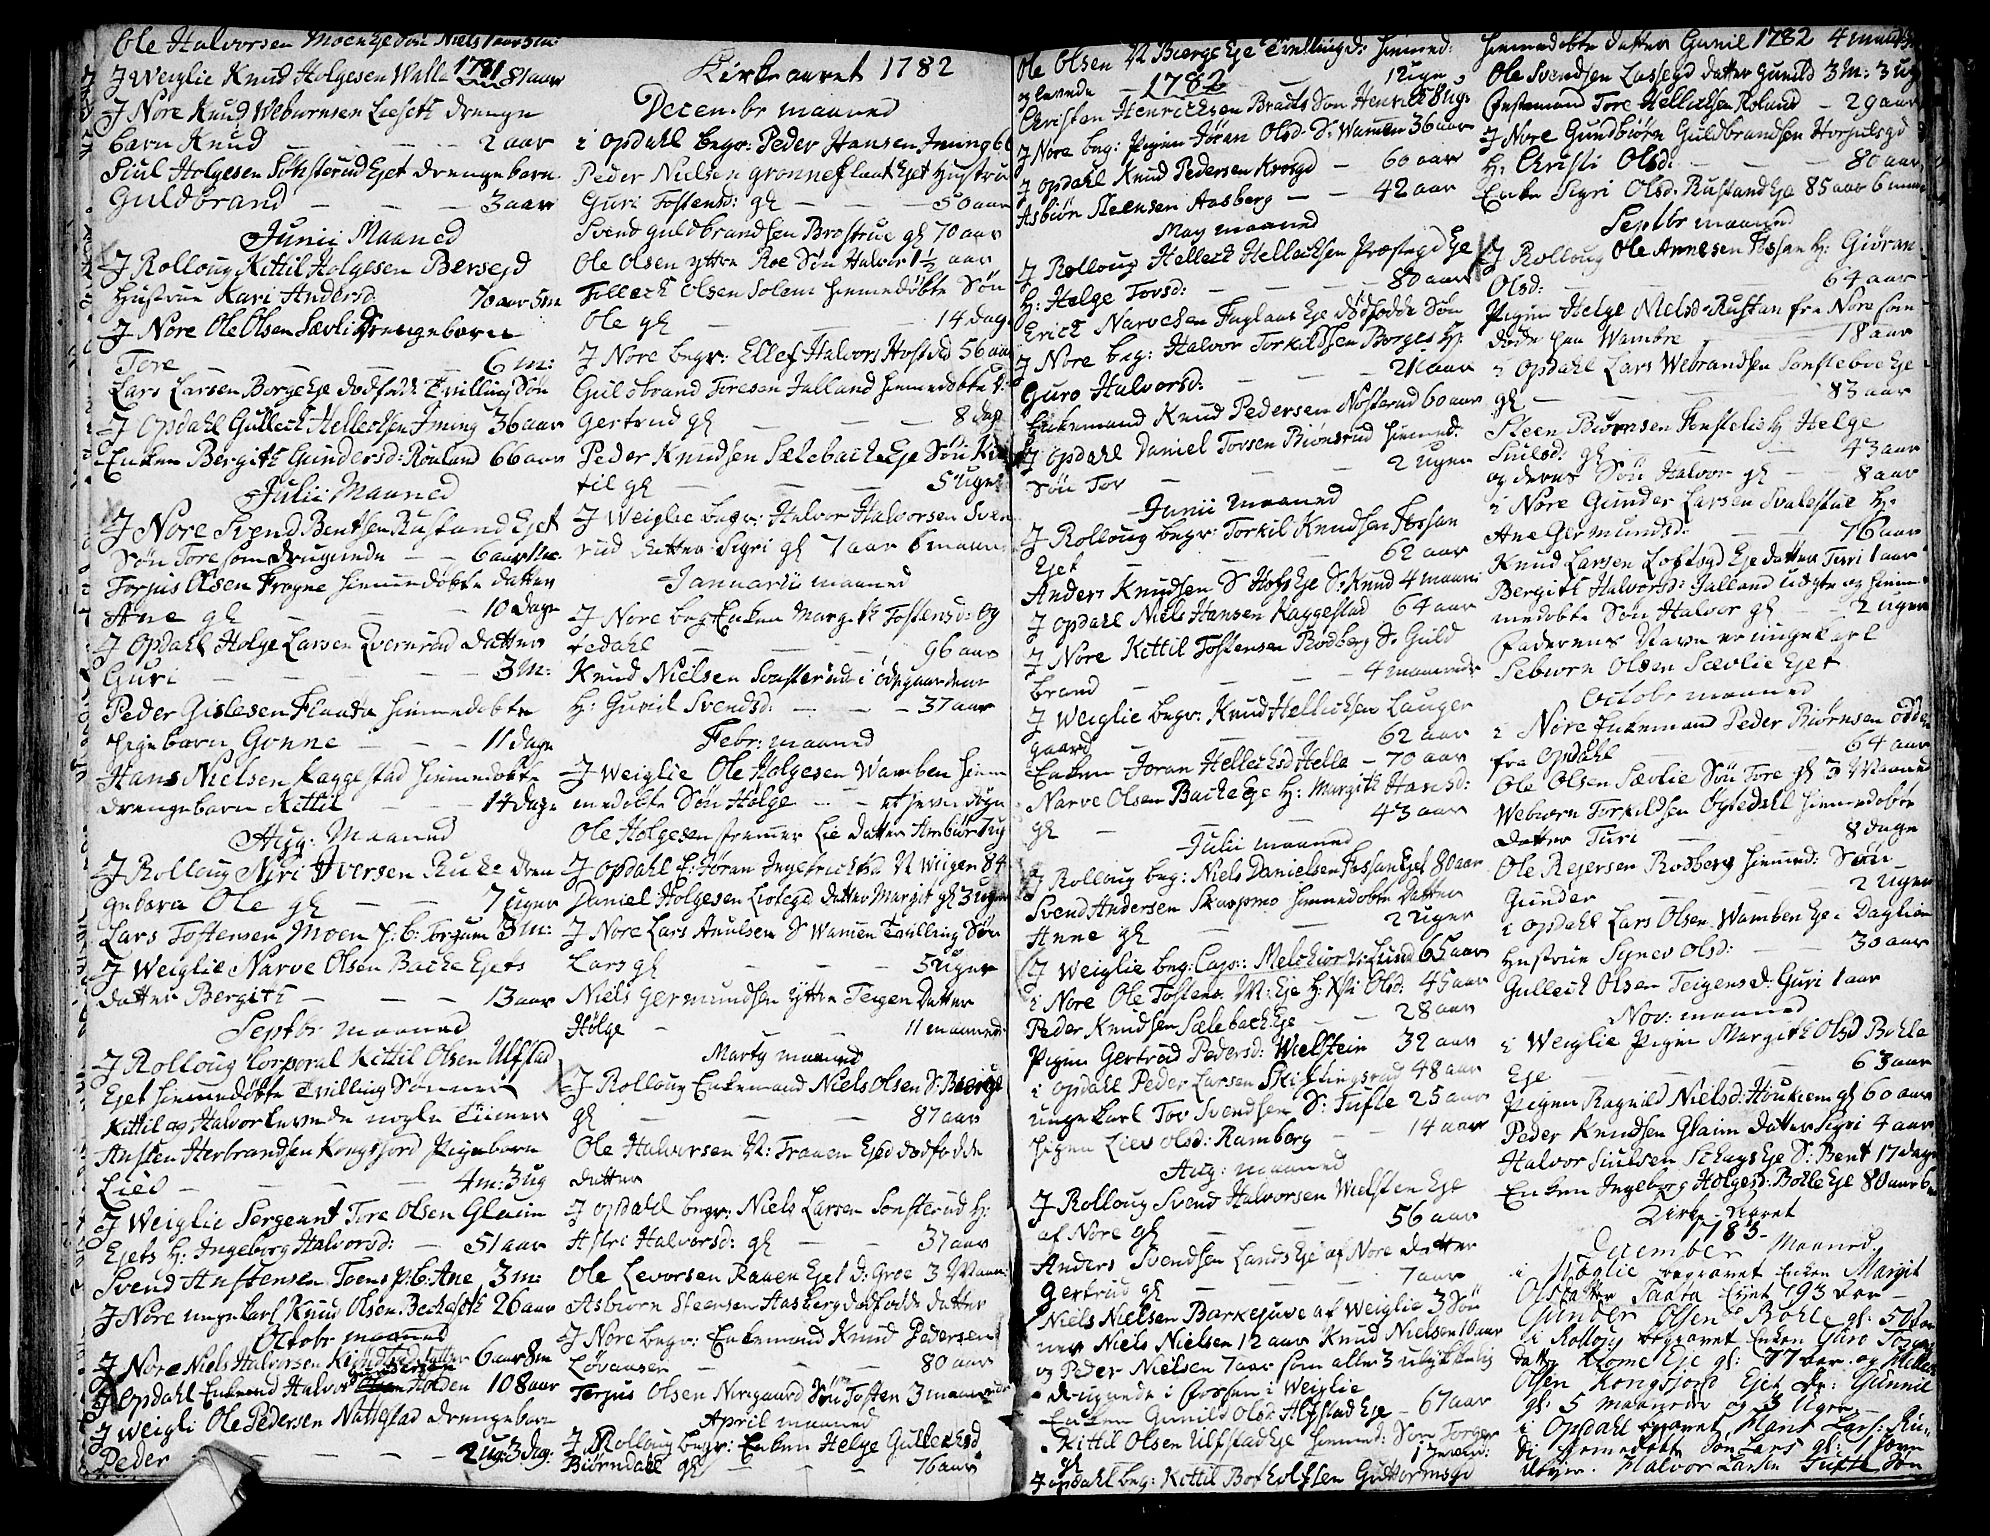 Ole Halvorsen Moen Eje Søn Niels 1 aar 5 m:
1781
J Weiglie Knud Holgesen Walla 81 aar
J Nore Knud Webiørnsen Lieseth drenge
barn Knud - - - 2 aar
Siul Holgesen Sønsterud Ejet drengebarn
Guldbrand - - - 3 aar
Junii Maaned
J Rolloug Kittil Holgesen Bersegd
Hustrue Kari Andersd: 70 aar 5 m
J Nore Ole Olsen Sævli Drengebarn
Tore - - - 6 m:
Lars Larsen Borge Eje dødfødt Tvilling Søn
J Opdahl Gulleck Hellecksen Jming 36 aar
Enken Bergith Gundersd: Rouland 66 aar
Julii Maaned
J Nore Svend Bentsen Rustand Ejet
Søn Tore som druknede - - 6 aar
Torjus Olsen Fragne hiemmedøbte datter
Ane gl - - 10 dage
J Opdahl Holge Larsen Qvernrud datter
Guri - - - 3 m:
Peder Gislesen Flaata hiemmedøbte
Pigebarn Gonne - - - 11 dage
Hans Nielsen Kaggestad hiemmedøbte
drengebarn Kittil - - 14 dage
Aug: Maaned
J Rolloug Niri Iversen Ruke dren
gebarn Ole gl - - 7 uger
Lars Tostensen Moen P: b: Torguun 3 m:
J Weiglie Narve Olsen Bache Ejets
datter Bergith - - - 13 aar
Septbr maaned
J Rolloug Corporal Kittil Olsen Ulfstad
Ejet hiemmedøbte Tvilling Sønner
Kittil og Halvor levende nogle Timer
Austen Herbrandsen Kongsjord Pigebarn
Liev - - - 4 m: 3 ug
J Weiglie Sergeant Tore Olsen Glaim
Ejets H: Ingeborg Halvorsd: - 51 aar
Svend Austensen Toens p: b: Ane 3 m:
J Nore ungekarl Knud Olsen Becheseth 26 aar
Octobr maaned
J Nore Niels Halvorsen datter 6 aar 8 m
J Opdahl Enkemd Halvor Holden 108 aar
J Weigli Ole Pedersen Nattestad drengebarn
Peder - - - 2 ug: 3 dag:
Kirke aaret 1782
Decembr maaned
i Opdahl begr: Peder Hansen Jming 66
Peder Nielsen Grønneflaat Ejet Hustrue
Guri Tostensd: gl - - - 50 aar
Svend Guldbrandsen Brøstrue gl 70 aar
Ole Olsen yttre Roe Søn Halvor 1½ aar
Tilleck Olsen Solem hiemmedøbte Søn
Ole gl - - - 14 dag
J Nore begr: Ellef Halvors Hofsted 56 aar
Guldbrand Toresen Jalland hiemmedøbte d:
Gertrud gl - - - 8 dag
Peder Knudsen Sælebache Eje Søn Kit
til gl - - - 5 uger
J Weiglie begr: Halvor Halvorsen Sven
rud datter Sigri gl 7 aar 6 maan
Januarii maaned
J Nore beg Enken Margith Tostensd: Og
tedahl - - - 96 aar
Knud Nielsen Sønsterud i ødegaardens
H: Guniil Svendsd: - - - 37 aar
Febr: maaned
J Weiglie Ole Holgesen Wamben hiem
medøbte Søn Holge - - et jevn døgn
Ole Holgesen fremmer Lie datter Ambiør 7 ug
J Opdahl E: Jøran Ingebricktsd N Wiigen 84
Daniel Holgesen Liosegd datter Margit gl 3 uger
J Nore Lars Anulsen S Wamen Tvilling Søn
Lars gl - - - 5 uger
Niels Germundsen yttre Teigen Datter
Holge - - - 11 maaned:
Marty maaned
J Rolloug Enkemand Niels Olsen S: Bierge
gl - - - 87 aar
Ole Halvorsen N: Traaen Ejed dødfødde
datter
J Opdahl begr: Niels Larsen Sønsterud H:
Astri Halvorsd: gl - - 37 aar
Ole Levorsen Raaen Ejet d: Groe 3 Maan:
Asbiørn Steensen Aasberg dødfødde datter
J Nore begr: Enkemand Knud Pedersen
Løvaasen - - - 80 aar
Torjus Olsen Norigaard Søn Tosten 3 maaneder
April maaned
J Rolloug begr: Enken Helge Gullecksd
Biørndahl gl - - - 76 aar
Ole Olsen N Bierge Eje Tvillingd: hiemmed:
og levede - 1782 - 1 Uge
Christen Henrichsen Braats Søn Henrich 8 ug:
J Nore beg: Pigen Jøran Olsd: S: Wamen 36 aar
J Opdahl Knud Pedersen Krosgd - 60 aar
Asbiørn Steensen Aasberg - - 42 aar
May maaned
J Rolloug Helleck Hellecksen Præstegd Eje
H: Helge Torsd: - - - 80 aar
Erick Narvesen Fuglaas Eje dødfødde Søn
J Nore beg: Halvor Torkildsen Borges H:
Guro Halvorsd: - - - 21 aar
Enkemand Knud Pedersen Nøsterud 60 aar
J Opdahl Daniel Torsen Biønsrud hiemmed:
Søn Tor - - - 2 uger
Junii maaned
J Rolloug begr: Torkil Knudsen Fossan
Ejet - - - 62 aar
Anders Knudsen S Hofs Eje S: Knud 4 maan:
J Opdahl Niels Hansen Kaggestad 64 aar
J Nore Kittil Tostensen Rodberg S: Guld
brand - - - 4 maaneds
J Weiglie begr: Knud Hellecksen Lauger
gaard - - - 62 aar
Enken Joran Hellecksd Helle - 70 aar
Narve Olsen Bache Eje H: Margith Hansd:
gl - - - 43 aar
Julii maaned
J Rolloug beg: Niels Danielsen Fossan Ejet 80 aar
Svend Andersen Skarpmo hiemmedøbte Datter
Anne gl - - - 2 uger
J Weiglie beg: Capt: Melchior v: Lund 65 aar
i Nore Ole Tostens. M: Eje H: Kisti Olsd: 45 aar
Peder Knudsen Sælebach Eje - - 28 aar
Pigen Gertrud Pedersd: Wielstein 32 aar
i Opdahl Peder Larsen Skistingsrud 48 aar
ungekarl Tor Svendsen S: Tufte 25 aar
Pigen Liev Olsd: Ramborg - - 14 aar
Aug: maaned
J Rolloug Svend Halvorsen Wielsten Eje
af Nore gl - - - 56 aar
Anders Svendsen Lands Eje af Nore datter
Gertrud gl - - - 7 aar
Niels Nielsen Barkejuve af Weiglie 3 Søn
ner Niels Nielsen 12 aar Knud Nielsen 10 aar
og Peder Nielsen 7 aar som alle 3 ulykkelig
druknede i Fossen i Weiglie
Enken Gunild Olsd: Ulfstad Eje - 67 aar
Kittil Olsen Ulfstad Eje hiemmed: Søn Torger
gl
J Opdahl beg: Kittil Botholfsen Guttormsgd
hiemmedøbte datter Guniil 1782 4 maaneder
Ole Svendsen Lassegd datter Gunild 3 M: 3 ug
Enkemand Tore Hellecksen Roland - 29 aar
J Nore Gundbiørn Guldbrandsen Horjulsgd
H: Christi Olsd: - - - 80 aar
Enken Sigri Olsd: Rustand Eje 85 aar 6 maan
Septbr maaned
J Rolloug Ole Annesen Fossan H: Giøran
Olsd: - - - 64 aar
Pigen Helge Nielsd: Rustan fra Nore som
døde paa Wambre - - 18 aar
i Opdahl Lars Webrandsen Sønstebøe Eje
gl - - - 83 aar
Steen Biørnsen Tonstelie H Helge
Siulsd: gl - - 43 aar
og deres Søn Halvor gl - - 8 aar
i Nore Gunder Larsen Svalestue H:
Ane Germundsd: - - 76 aar
Knud Larsen Loftsgd Eje datter Turi 1 aar
Bergith Halvorsd: Jalland Uægte og hiem
medøbte Søn Halvor gl - 2 uger
Faderens Navn er ungekarl
Sebiørn Olsen Sævlie Ejet
Octobr maaned
i Nore Enkemand Peder Biørnsen
fra Opdahl - - 64 aar
Ole Olsen Sævlie Søn Tore gl 3 Maaned
Webiørn Torkildsen Øgtedahl hiemmedøbte
datter Turi - - - 8 dage
Ole Rejersen Rodberg hiemmed: Søn
Gunder - - - 2 uger
i Opdahl Lars Olsen Wamben Eje Daglien
Hustrue Synev Olsd: - - 30 aar
Gulleck Olsen Teigens d: Guri 1 aar
Nov: maaned
i Weiglie Pigen Margith Olsd Bohle
Eje - - - 63 aar
Pigen Ragnild Nielsd: Houkiem gl 60 aar
Peder Knudsen Glaim datter Sigri 4 aar
Halvor Siulsen Skags Eje S: Bent 17 dage
Enken Ingeborg Holgesd: Bolle Eje 80 aar
Kirke-Aaret
1783
December Maaned.
i Weglie begravet Enken Margit
Olsdatter Taata Ejet 93 Aar -
Gunder Olsen Bohle gl: 50 Aar
i Rollog begravet Enken Guro
datter Klome Eje gl: 77 Aar. og
Olsen Kongsjord Ejet Dr: Gunnil
gl: 5 Maaneder og 3 Uger -
i Opdahl begravet Hans Lars:
hiemmedøbte Søn Lars gl:
Halvor Larsen Tufte Søn